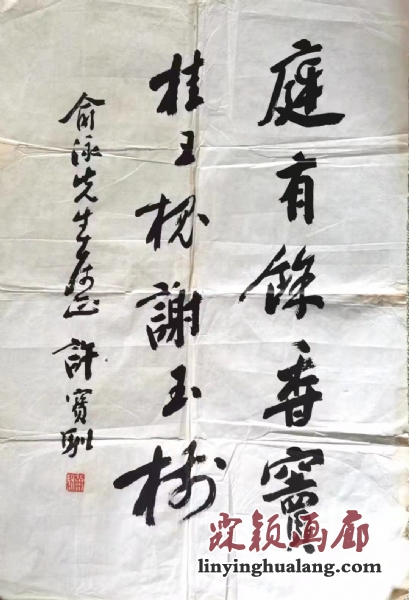 庭有餘香竇
桂王槐謝玉樹
俞泳先生正 許寶馴
霖颖画廊
linyinghualang.com